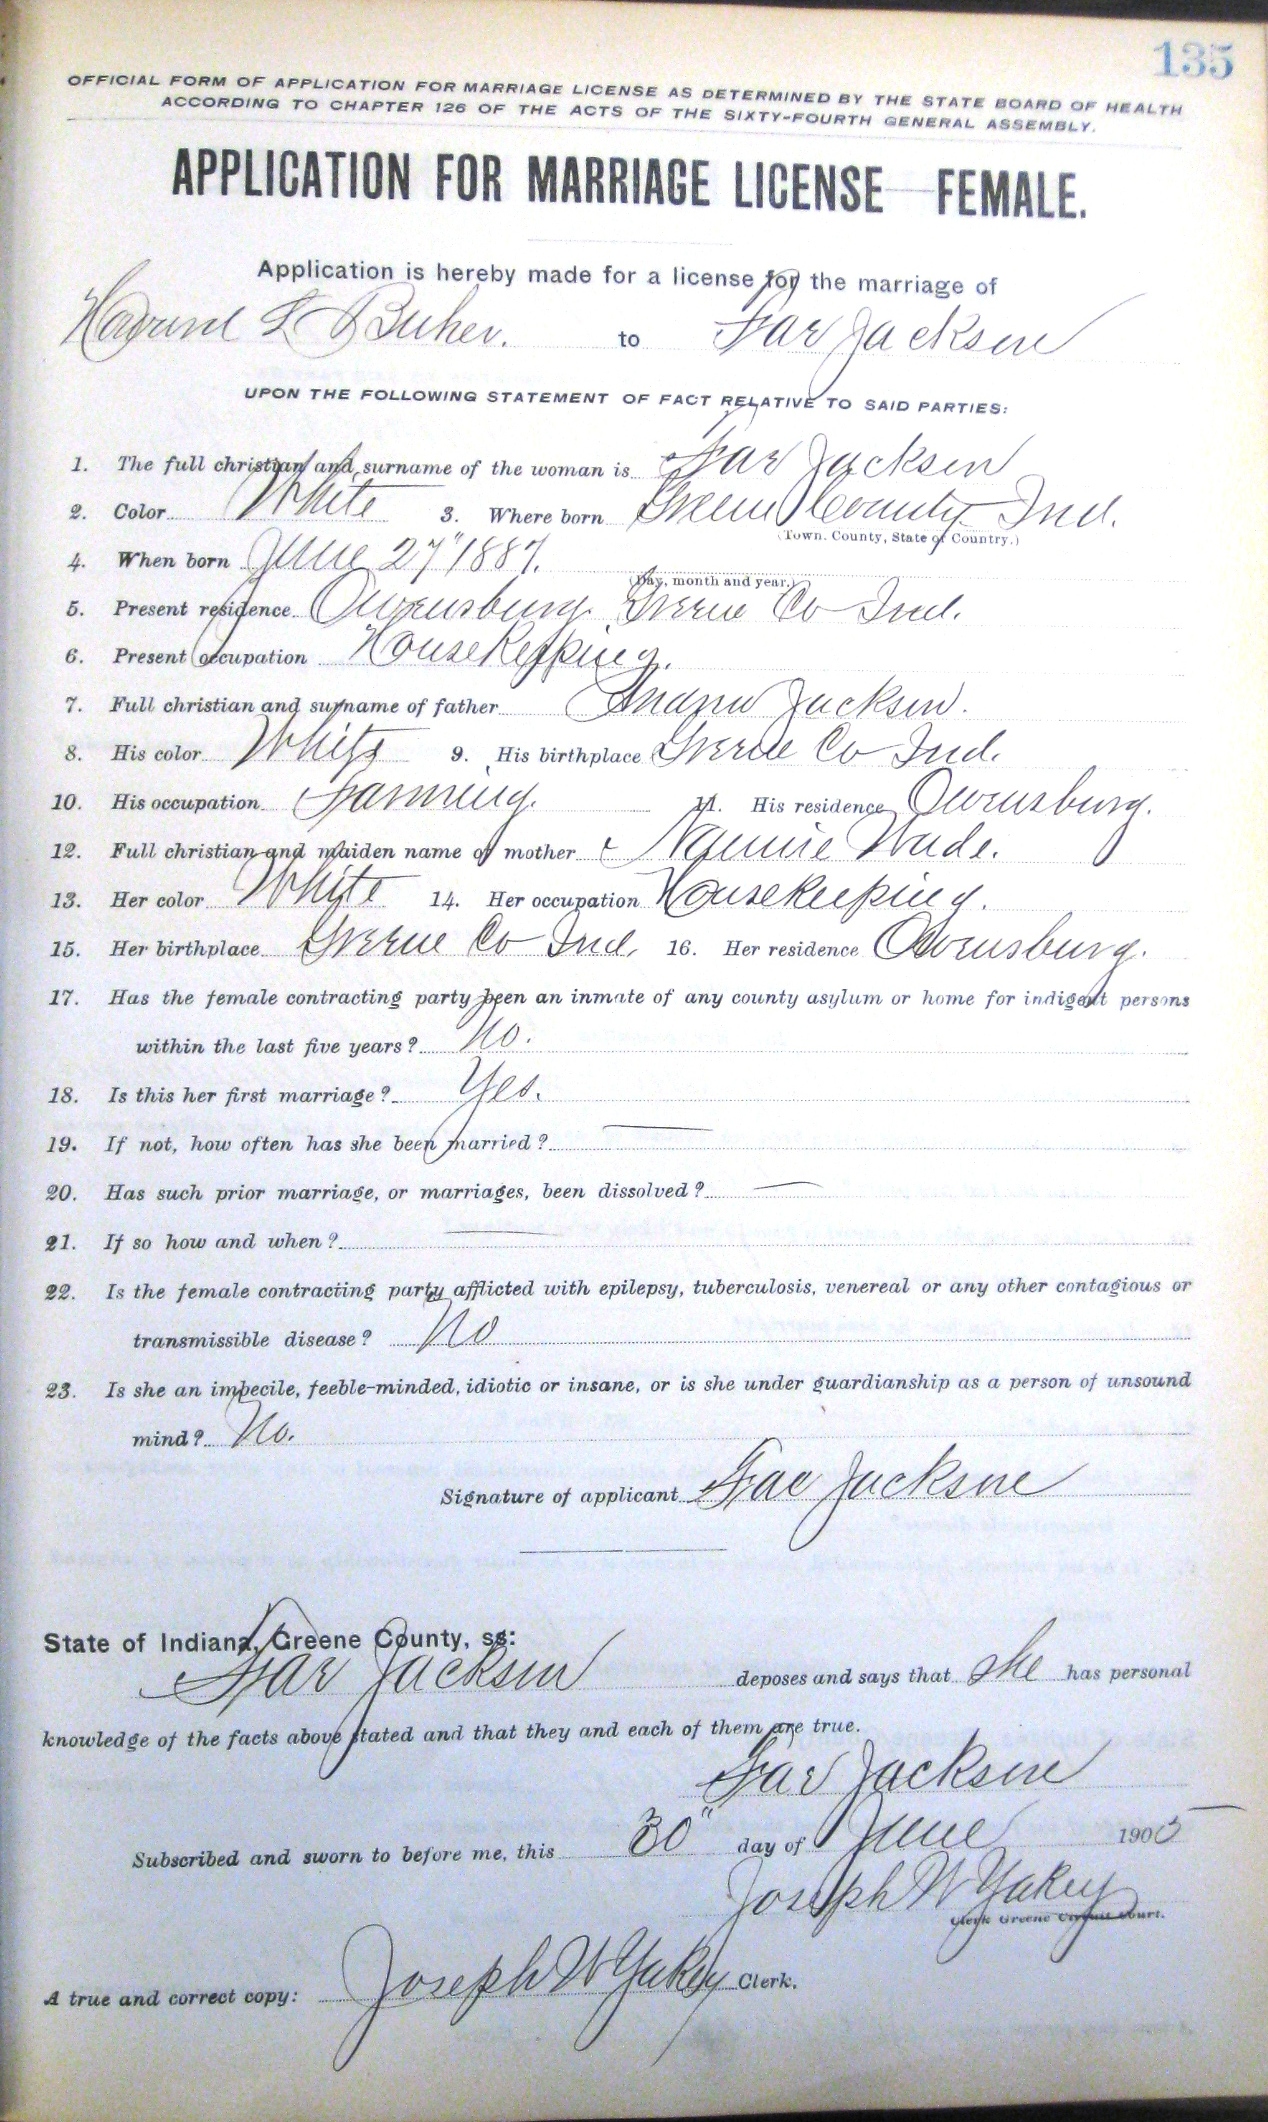 135
OFFICIAL FORM OF APPLICATION FOR MARRIAGE LICENSE AS DETERMINED BY THE STATE BOARD OF HEALTH
ACCORDING TO CHAPTER 126 OF THE ACTS OF THE SIXTY-FOURTH GENERAL ASSEMBLY.
APPLICATION FOR MARRIAGE LICENSE—FEMALE.
Application is hereby made for a license for the marriage of
to Fae Jackson
UPON THE FOLLOWING STATEMENT OF FACT RELATIVE TO SAID PARTIES:
1. The full christian and surname of the woman is Fae Jackson
2. Color White 3. Where born Greene County Ind.
(Town. County, State or Country.)
4. When born June 27" 1887.
(Day, month and year.)
5. Present residence Owensburg Greene Co Ind.
6. Present occupation Housekeeping.
7. Full christian and surname of father Jackson.
8. His color White 9. His birthplace Greene Co Ind.
10. His occupation Farming. 11. His residence Owensburg.
12. Full christian and maiden name of mother Nannie Wade.
13. Her color White 14. Her occupation Housekeeping.
15. Her birthplace Greene Co Ind. 16. Her residence Owensburg.
17. Has the female contracting party been an inmate of any county asylum or home for indigent persons
within the last five years? No.
18. Is this her first marriage? Yes.
19. If not, how often has she been married? —
20. Has such prior marriage, or marriages, been dissolved? —
21. If so how and when? —
22. Is the female contracting party afflicted with epilepsy, tuberculosis, venereal or any other contagious or
transmissible disease? No
23. Is she an imbecile, feeble-minded, idiotic or insane, or is she under guardianship as a person of unsound
mind? No.
Signature of applicant Fae Jackson
State of Indiana, Greene County, ss:
Fae Jackson deposes and says that she has personal
knowledge of the facts above stated and that they and each of them are true.
Fae Jackson
Subscribed and sworn to before me, this 30" day of June 1905
Joseph W Yakey
Clerk Greene Circuit Court.
A true and correct copy: Joseph W Yakey Clerk.